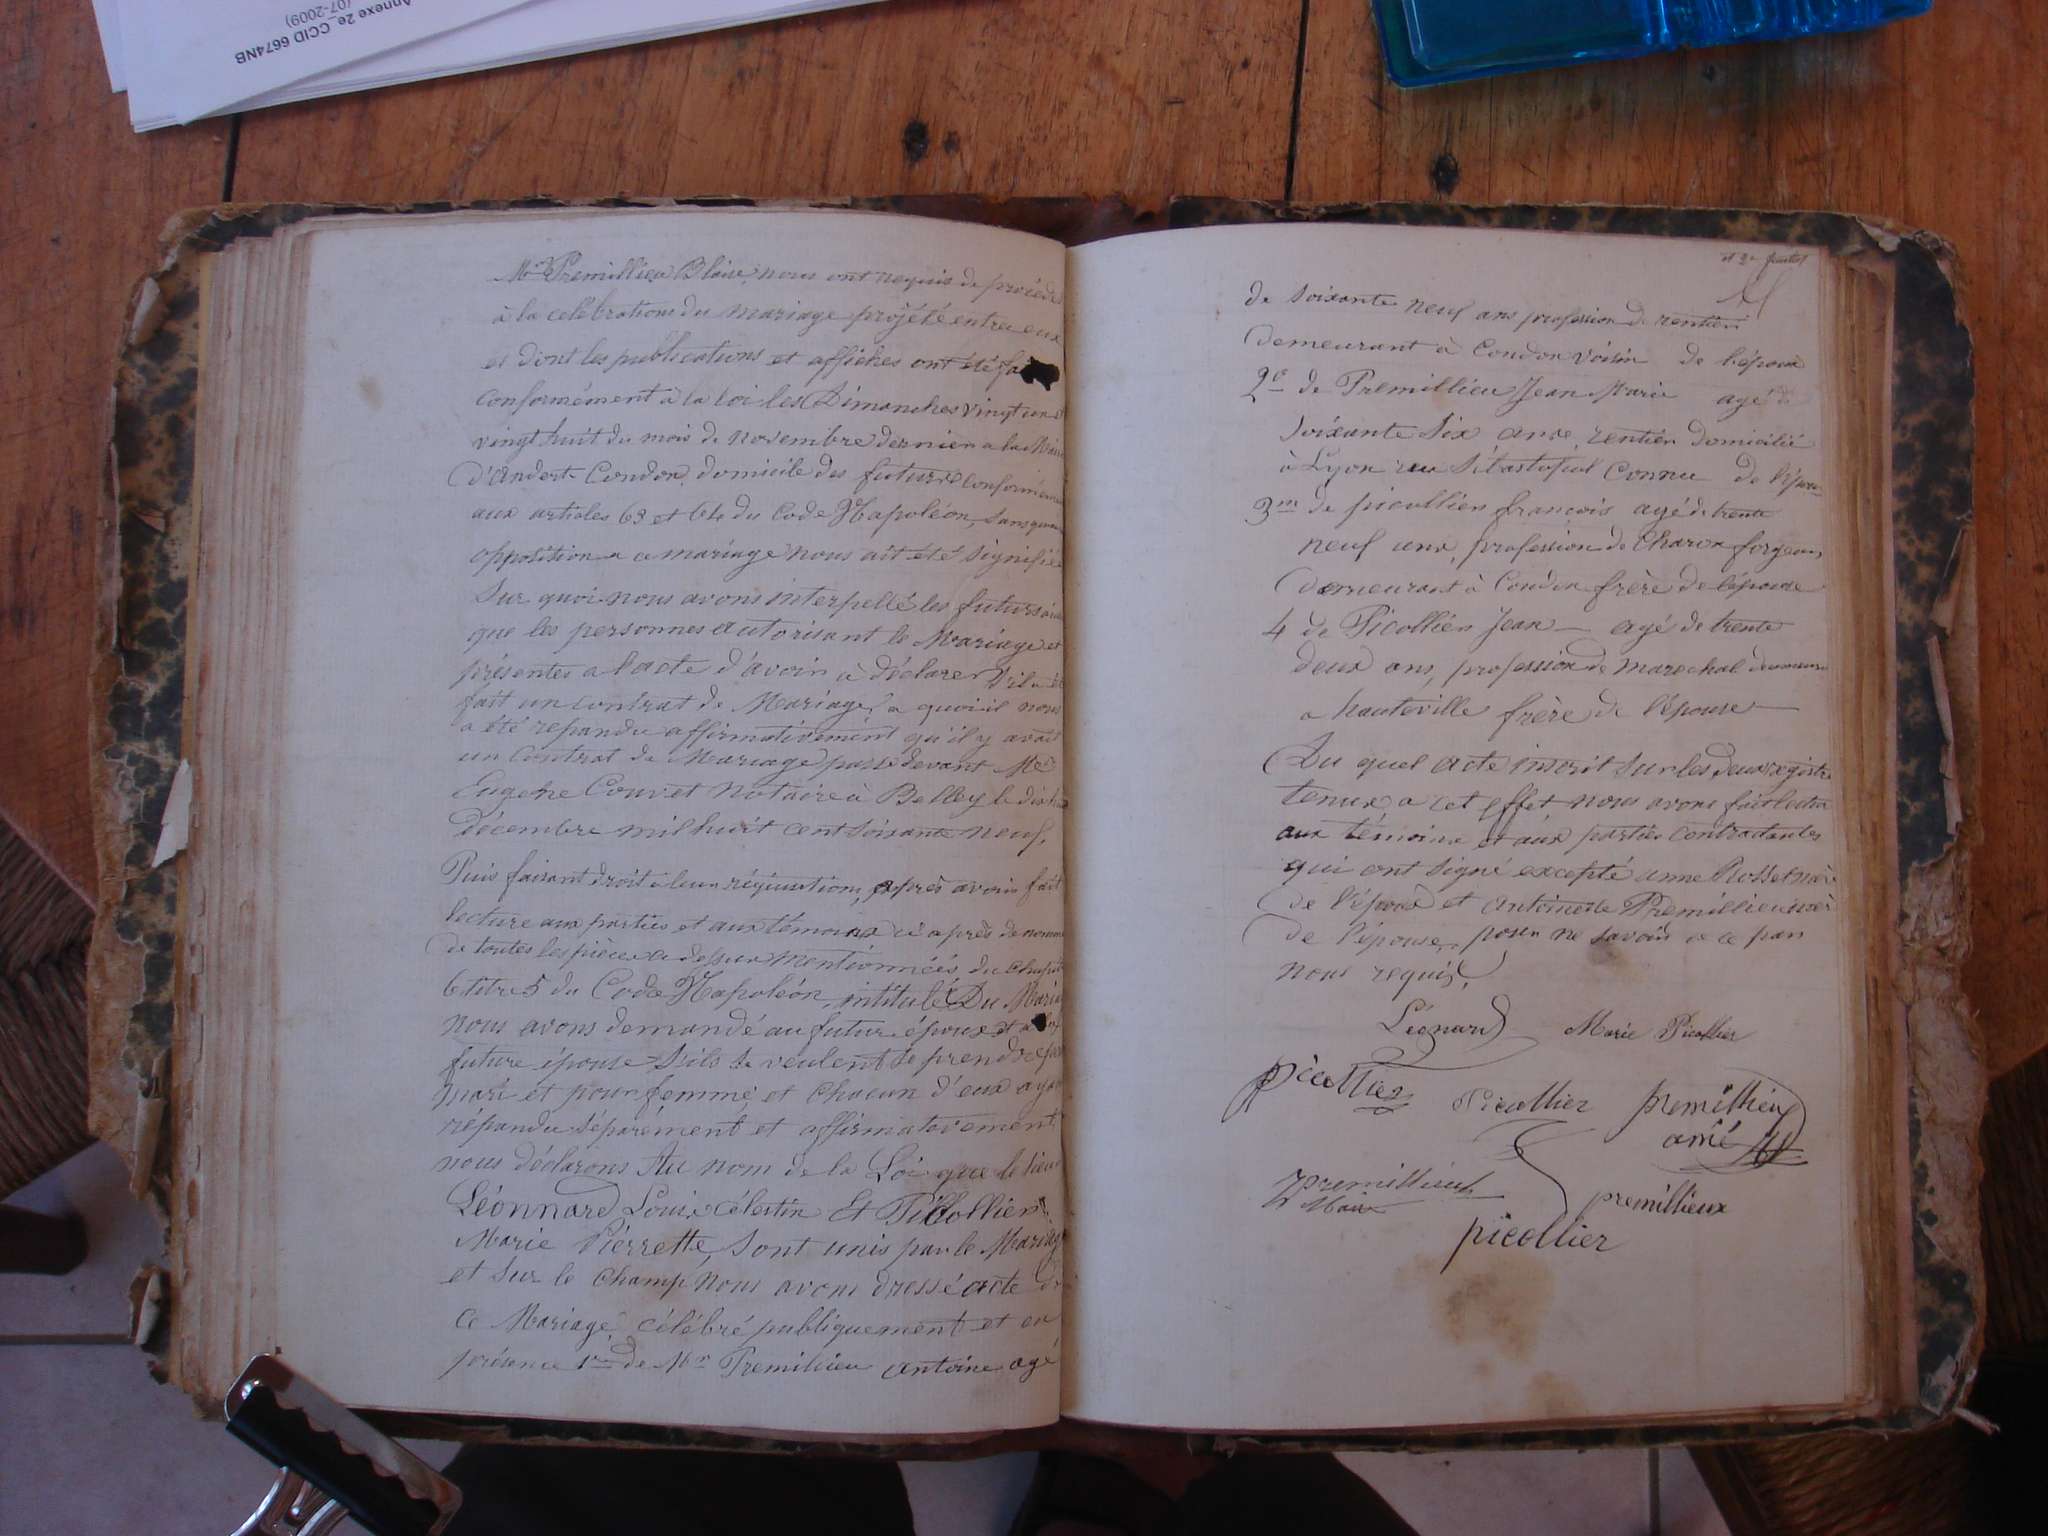 Annexe 2e_CCID 6674NB
(07-2009)
Mr Premillieu Blaise, nous ont requis de procéder
à la célébrations du mariage projété entre eux
et dont les publications et affiches ont été
conformément à la loi les Dimanches vingt un et
vingt huit du mois de novembre dernier a la
D'Andert-Condon, domicile des futurs conformément
aux articles 63 et 64 du Code Napoléon, sans
opposition a ce mariage nous ait été signifié
Sur quoi nous avons interpellé les futurs
que les personnes autorisant le Mariage et
présentes a l'acte d'avoir à déclarer S'il a été
fait un contrat de Mariage, a quoi il nous
a été repandu affirmativement qu'il y avait
un Contrat de Mariage passé devant Me
Eugene Couvet Notaire à Belley le
décembre mil huit cent soixante neuf,
Puis faisant droit à leur réquisitions, après avoir fait
lecture aux parties et aux témoins ci après denommés
de toutes les pièces ci dessus mentionnées du chapitre
6 titre 5 du Code Napoléon, intitulé Du Mariage
nous avons demandé au futur époux et a la
future épouse S'ils se veulent se prendre pour
mari et pour femme, et chacun d'eux ayant
répandu séparément et affirmativement
nous déclarons Au nom de la Loi que le sieur
Léonnard Louis célestin Et Picollier
Marie Pierrette, Sont unis par le Mariage
et Sur le champ Nous avons dressé acte de
ce Mariage, célébré publiquement et en
présence 1er de Mr Premillieu Antoine agé
et 2e feuillet
de soixante neuf ans profession de rentier
demeurant à Condon voisin de l'époux
2e de Premillieu Jean Marie agé de
soixante Six ans, rentier domicilié
à Lyon rue Sébastopol Connu de l'époux
3m de picollier francois agé de trente
neuf ans, profession de Charon forgeron,
demeurant à Condon frère de l'épouse
4 de Picollier Jean - agé de trente
deux ans, profession de marechal demeurant
a hauteville frère de l'épouse
Du quel acte inscrit sur les deux registres
tenus a cet effet nous avons fait lecture
aux témoins et aux parties contractantes
qui ont signé excepté anne Rosset mère
de l'époux et antoinette Premillieu mère
de l'épouse, pour ne savoir de ce par
nous requis,
Léonard Marie Picollier
picollier Picollier premillieu
aimé
Premillieux premillieux
Maire
picollier